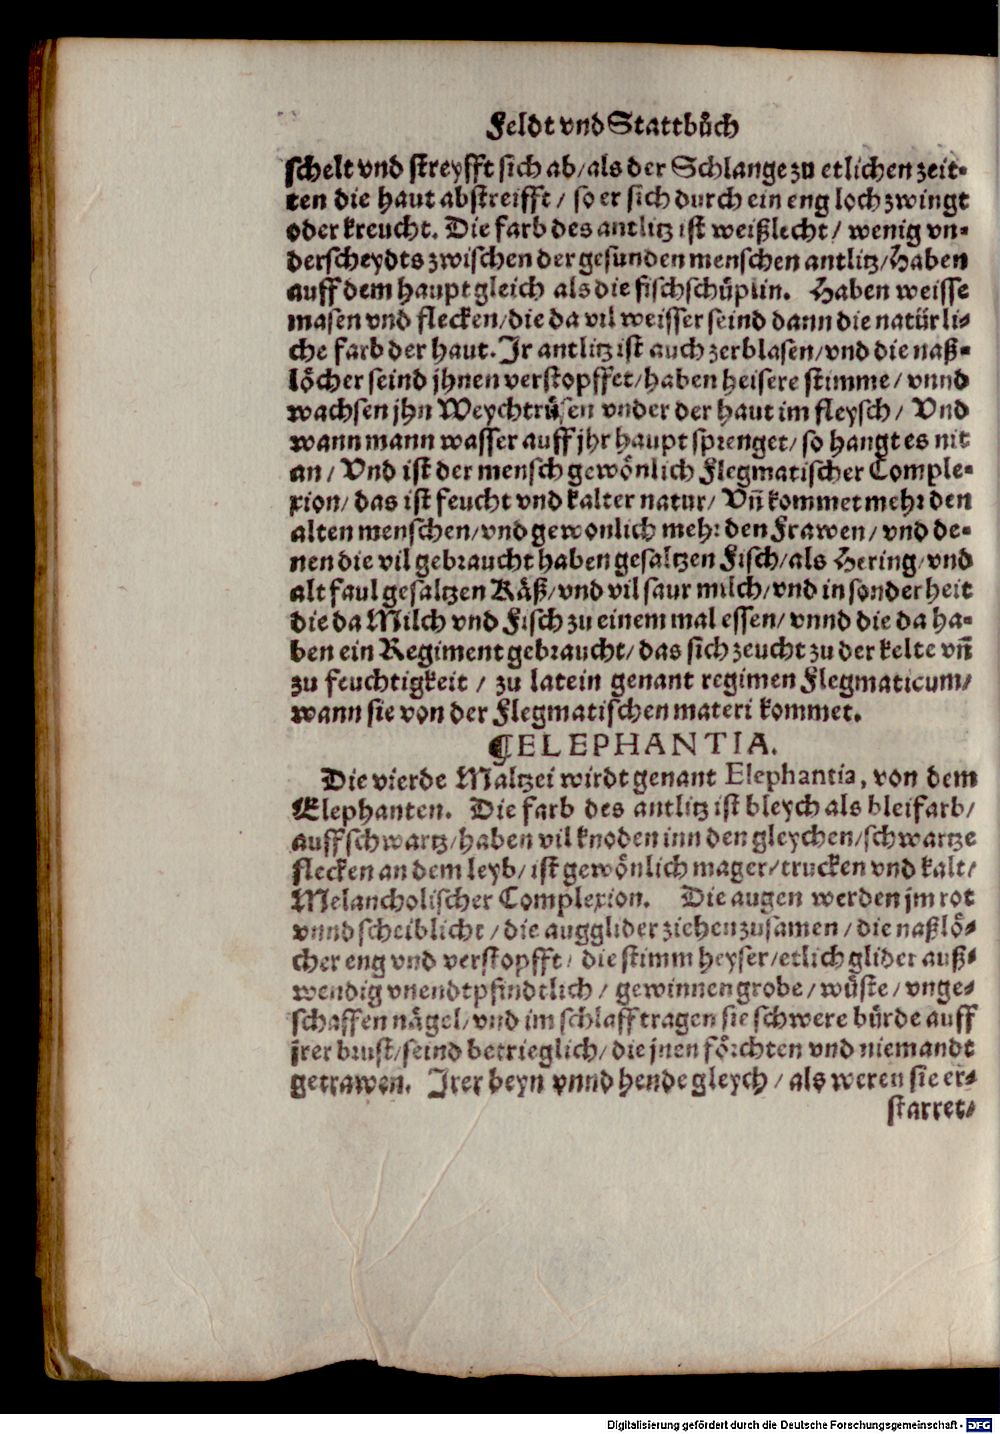 Feldt vnd Stattbůch
schelt vnd streyfft sich ab/als der Schlange zu etlichen zeit-
ten die haut abstreifft / so er sich durch ein eng loch zwingt
oder kreucht. Die farb des antlitz ist weißlecht/ wenig vn-
derscheydts zwischen der gesunden menschen antlitz/Haben
auff dem haupt gleich als die fischschüplin. Haben weisse
masen vnd flecken/die da vil weisser seind dann die natürli-
che farb der haut. Ir antlitz ist auch zerblasen/vnd die naß-
löcher seind jhnen verstopffet/haben heisere stimme/ vnnd
wachsen jhn Weychtrüsen vnder der haut im fleysch/ Vnd
wann mann wasser auff jhr haupt sprenget/ so hangt es nit
an/ Vnd ist der mensch gewönlich Flegmatischer Comple-
xion/ das ist feucht vnd kalter natur/ Vñ kommet mehr den
alten menschen/vnd gewonlich mehr den Frawen/ vnd de-
nen die vil gebraucht haben gesaltzen Fisch/als Hering/vnd
alt faul gesaltzen Käß/vnd vil saur milch/vnd in sonderheit
die da Milch vnd Fisch zu einem mal essen/ vnnd die da ha-
ben ein Regiment gebraucht/ das sich zeucht zu der kelte vñ
zu feuchtigkeit / zu latein genant regimen Flegmaticum/
wann sie von der Flegmatischen materi kommet.
¶ELEPHANTIA.
Die vierde Maltzei wirdt genant Elephantia, von dem
Elephanten. Die farb des antlitz ist bleych als bleifarb/
auff schwartz/haben vil knoden inn den gleychen/schwartze
flecken an dem leyb/ ist gewönlich mager/trucken vnd kalt/
Melancholischer Complexion. Die augen werden jm rot
vnnd scheiblicht /die augglider ziehen zusamen /die naßlö-
cher eng vnd verstopfft/ die stimm heyser/etlich glider auß-
wendig vnendtpfindtlich / gewinnen grobe/ wüste/ vnge-
schaffen nägel/vnd im schlaff tragen sie schwere bürde auff
jrer brust/seind betrieglich/die jnen förchten vnd niemandt
getrawen. Irer beyn vnnd hende gleych /als weren sie er-
starret-
Digitalisierung gefördert durch die Deutsche Forschungsgemeinschaft - DFG